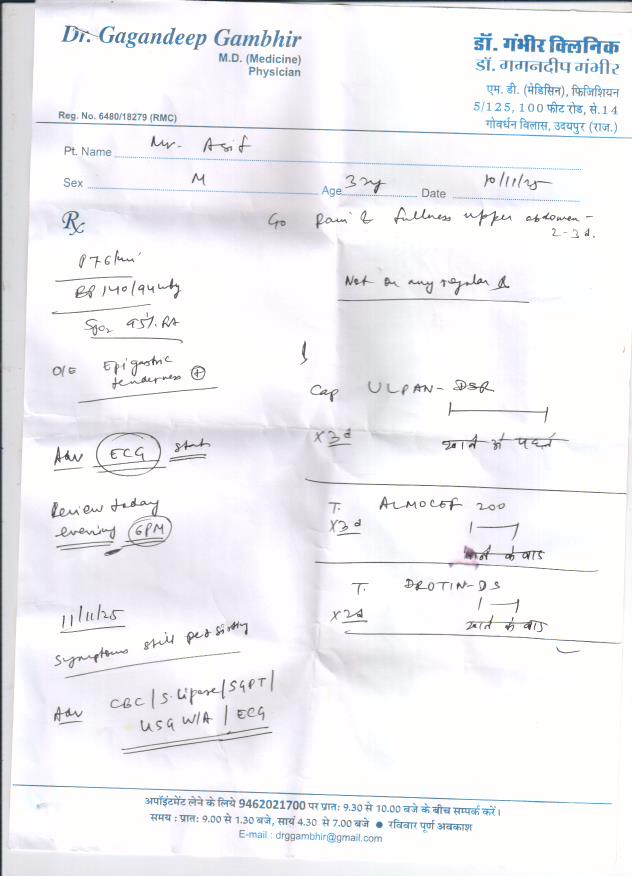 Dr. Gagandeep Gambhir
M.D. (Medicine)
Physician
Reg. No. 6480/18279 (RMC)
डॉ. गंभीर क्लिनिक
डॉ. गगनदीप गंभीर
एम. डी. (मेडिसिन), फिजिशियन
5/125, 100 फीट रोड, से.14
गोवर्धन विलास, उदयपुर (राज.)
Pt. Name Mr. Asif
Sex M Age 32y Date 10/11/25
Rx
C/o Pain & fullness upper abdomen -
2-3d.
P 76/min
BP 140/94
SpO2 95% RA
O/E Epigastric
tenderness +
Adv ECG stat
Review today
evening 6PM
11/11/25
Symptoms still persisting
Adv CBC / S. lipase / SGPT /
USG W/A / ECG
Not on any regular
Cap ULPAN-DSR
x3d खाने से पहले
T. ALMOCEF 200
x3d
खाने के बाद
T. DROTIN-DS
x2d
खाने के बाद
अपॉइंटमेंट लेने के लिये 9462021700 पर प्रातः 9.30 से 10.00 बजे के बीच सम्पर्क करें।
समय : प्रातः 9.00 से 1.30 बजे, सायं 4.30 से 7.00 बजे ● रविवार पूर्ण अवकाश
E-mail : drggambhir@gmail.com